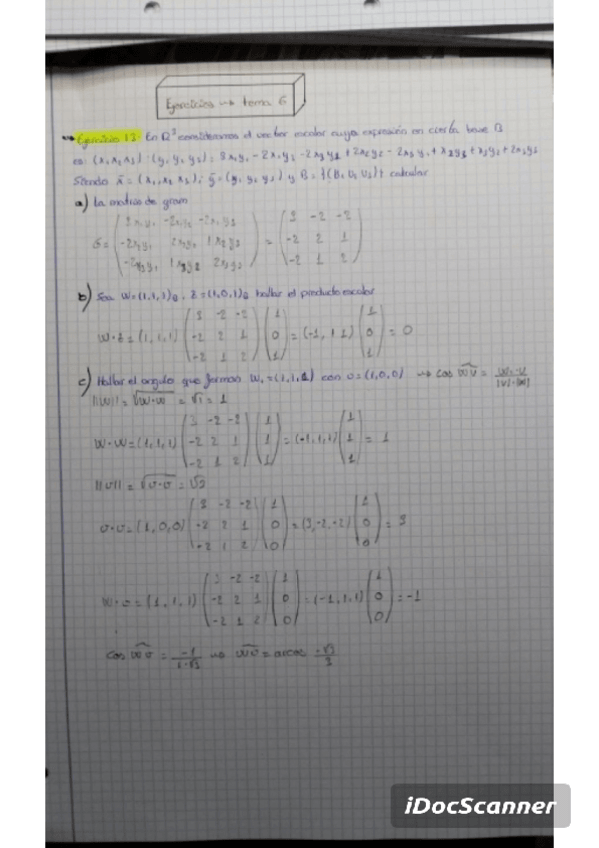 Ejercicios → tema 6
Ejercicio 12. En R³ consideramos el vector escolar cuya expresión en cierta base B
es: (x₁ x₂ x₃)·(y₁ y₂ y₃) = 3x₁y₁ - 2x₁y₂ - 2x₁y₃ + 2x₂y₂ - 2x₂y₁ + x₂y₃ + x₃y₂ + 2x₃y₃
Siendo x̄ = (x₁, x₂, x₃); ȳ = (y₁ y₂ y₃) y B = calcular
a) La matriz de gram
G = ( 3x₁y₁ -2x₁y₂ -2x₁y₃ ) = ( 3 -2 -2 )
( -2x₂y₁ 2x₂y₂ 1x₂y₃ ) ( -2 2 1 )
( -2x₃y₁ 1x₃y₂ 2x₃y₃ ) ( -2 1 2 )
b) Sea W=(1,1,1)B, z=(1,0,1)B hallar el producto escolar
W·z=(1,1,1) ( 3 -2 -2 ) ( 1 ) = (-1, 1 1) ( 1 ) = 0
( -2 2 1 ) ( 0 ) ( 0 )
( -2 1 2 ) ( 1 ) ( 1 )
c) Hallar el angulo que forman W₁=(1,1,1) con v=(1,0,0) → cos wv =
||W||= √W·W = √1 = 1
W·W=(1,1,1) ( 3 -2 -2 ) ( 1 ) = (-1,1,1) ( 1 ) = 1
( -2 2 1 ) ( 1 ) ( 1 )
( -2 1 2 ) ( 1 ) ( 1 )
||v|| = √v·v = √3
v·v=(1,0,0) ( 3 -2 -2 ) ( 1 ) = (3,-2,-2) ( 1 ) = 3
( -2 2 1 ) ( 0 ) ( 0 )
( -2 1 2 ) ( 0 ) ( 0 )
W·v=(1,1,1) ( 3 -2 -2 ) ( 1 ) = (-1,1,1) ( 1 ) = -1
( -2 2 1 ) ( 0 ) ( 0 )
( -2 1 2 ) ( 0 ) ( 0 )
cos wv = -1/1·√3 → wv = arcos -√3/3
iDocScanner